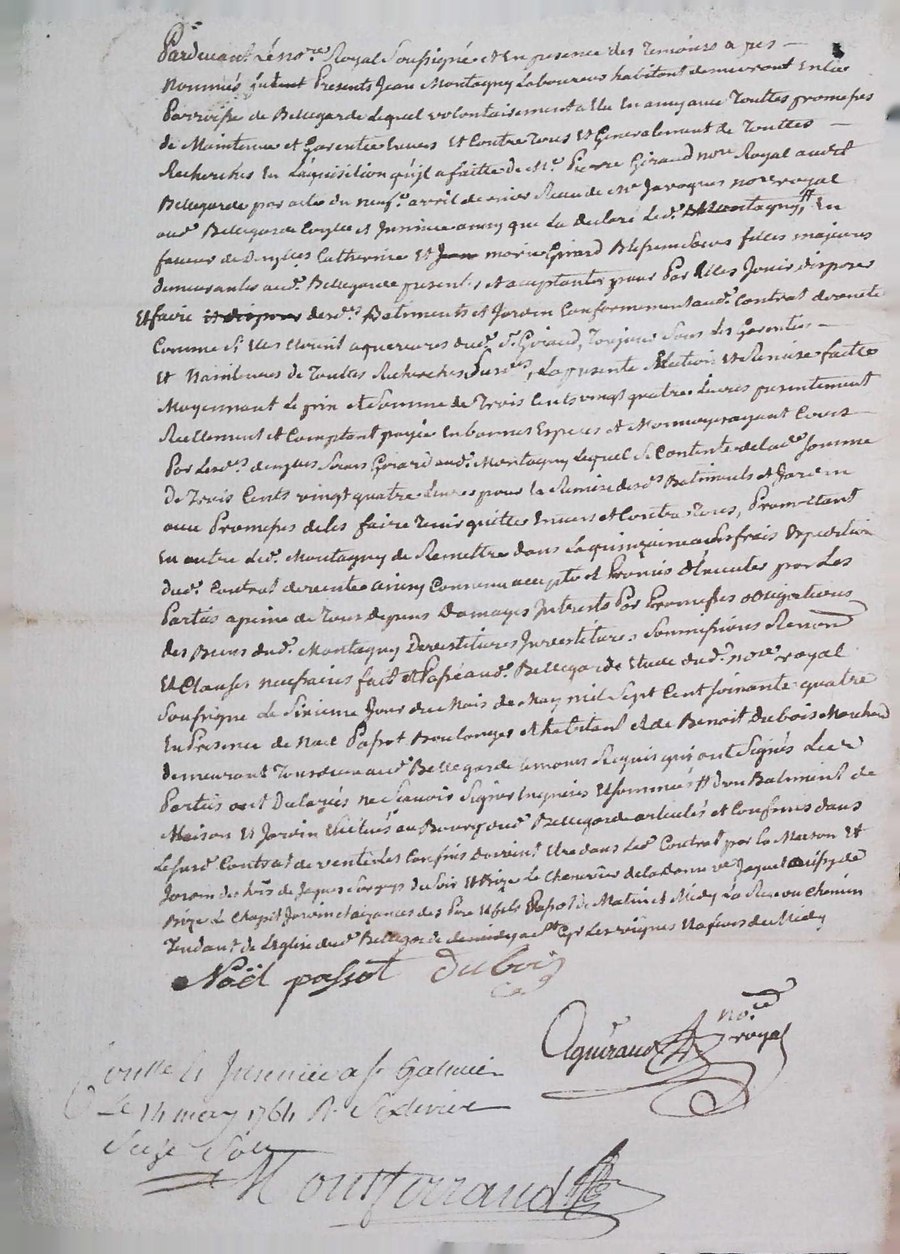 Pardevant Le no.re Royal Soussigné et En presence des temoins a pes
Nommés Presents Jean Montagny Laboureur habitant demeurant En la
Parroisse de Bellegarde Lequel volontairement a En amy avec Touttes promesses
de Maintenue et Garentie Envers Et Contre Tous Et Generalement de Touttes
Recherches En Laquisition quil a faitte de M.e Pierre Giraud no.re Royal audit
Bellegarde par acte du neuf.e avril dernier Receu de M.e Javogues no.re royal
aud. Bellegarde et ainsy que La declaré Led. Montagny, # En
faveur de Catherine Et Jean marie Girard Sœurs filles majeures
demeurantes aud. Bellegarde presentes et acceptantes pour Par Elles Jouir disposer
Et faire et disposer desd. Batiments et Jardin Conformement aud. Contrat de vente
Comme Si Elles Etoient aquereures dud. S.r Giraud, Toujours Sous Les Garenties
Et de Touttes Recherches Susd.es, La presente Election Et Remise faitte
Moyennant Le prix et Somme de Trois Cents vingt quatre Livres presentement
Reellement et Comptant payée En bonnes Especes et Monnoye ayant Cours
Par Lesd. Sœurs Girard aud. Montagny Lequel Se Contente de lad. Somme
de Trois Cents vingt quatre Livres pour la Remise desd. Batiments et Jardin
avec Promesses de les faire Tenir quittes Envers et Contre Tous, Promettant
En outre Led. Montagny de Remettre dans La quinzaine a Ses frais Expedition
dud. Contrat de vente ainsy Convenu accepté et Promis Executer par Les
Parties a peine de Tous depens Domages Interests Par Promesses obligations
des Biens dud. Montagny Devestitures Investitures Soumissions Renon.
Et Clauses necessaires fait et Passé aud. Bellegarde Etude dud. no.re royal
Soussigné Le Sixieme Jour du Mois de May mil Sept Cent Soixante quatre
En Presence de Noel Passot Boulanger Et habitant Et de Benoit Dubois Marchand
demeurant Tous deux aud. Bellegarde temoins Requis qui ont Signés Les
Parties ont Declarés ne Scavoir Signer Enquises Et Sommées # d'un Batiment de
Maison Et Jardin Situés au Bourg dud. Bellegarde articulés et Confinés dans
Le Susd. Contrat de vente Les Confins dans Led. Contrat par la Maison Et
Jardin des h.rs de Jaques du Soir Et Bize La Cheneviere de la Dame v.e Jaquet de
Bize Le Chapit Jardin et aizances des Pere Et fils Passot de Matin et Midy La Rue ou Chemin
Tendant de L'Eglise dud. Bellegarde
Noël passot Dubois
Giraud no.re royal
Le 14 may 1764 R.
Seize Sols
Montferrand